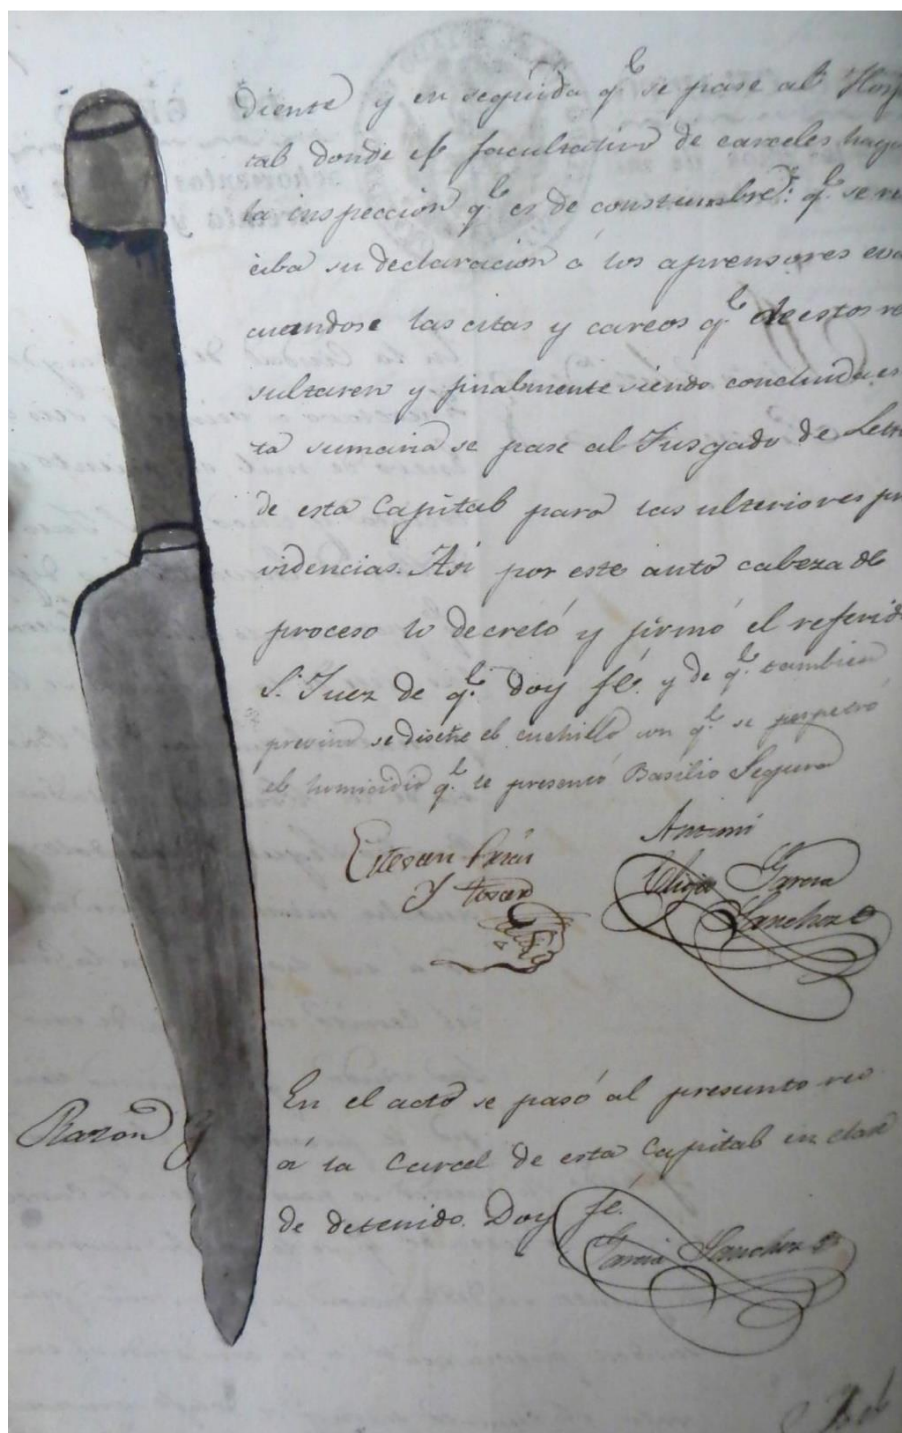 diente y en seguida q.e se pase al Hosp
tal donde el facultativo de carceles haga
la inspeccion q.e es de constumbre: q.e se re
ciba su declaracion á los aprensores eva
cuandose las citas y careos q.e de estos re
sultaren y finalmente siendo concluida es
ta sumaria se pase al Jusgado de Letr
de esta Capital para las ulteriores pro
videncias. Asi por este auto cabeza de
proceso lo decretó y firmó el referido
S.r Juez de q.e doy fé. y de q.e tambien
previno se diseñe el cuchillo con q.e se perpetró
el homicidio q.e le presentó Basilio Segura
Antemi
Estevan Paéz
y Tovar
Garcia
Sanchez
Razon
En el acto se pasó al presunto reo
á la Carcel de esta Capital en clase
de detenido. Doy fé.
Garcia Sanchez